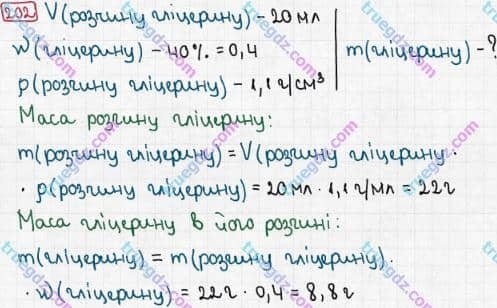 202 V(розчину гліцерину) - 20 мл
w(гліцерину) - 40% = 0,4
m(гліцерину) - ?
ρ(розчину гліцерину) - 1,1 г/см³
Маса розчину гліцерину:
m(розчину гліцерину) = V(розчину гліцерину) ·
· ρ(розчину гліцерину) = 20 мл · 1,1 г/мл = 22 г
Маса гліцерину в його розчині:
m(гліцерину) = m(розчину гліцерину) ·
· w(гліцерину) = 22 г · 0,4 = 8,8 г
truegdz.com